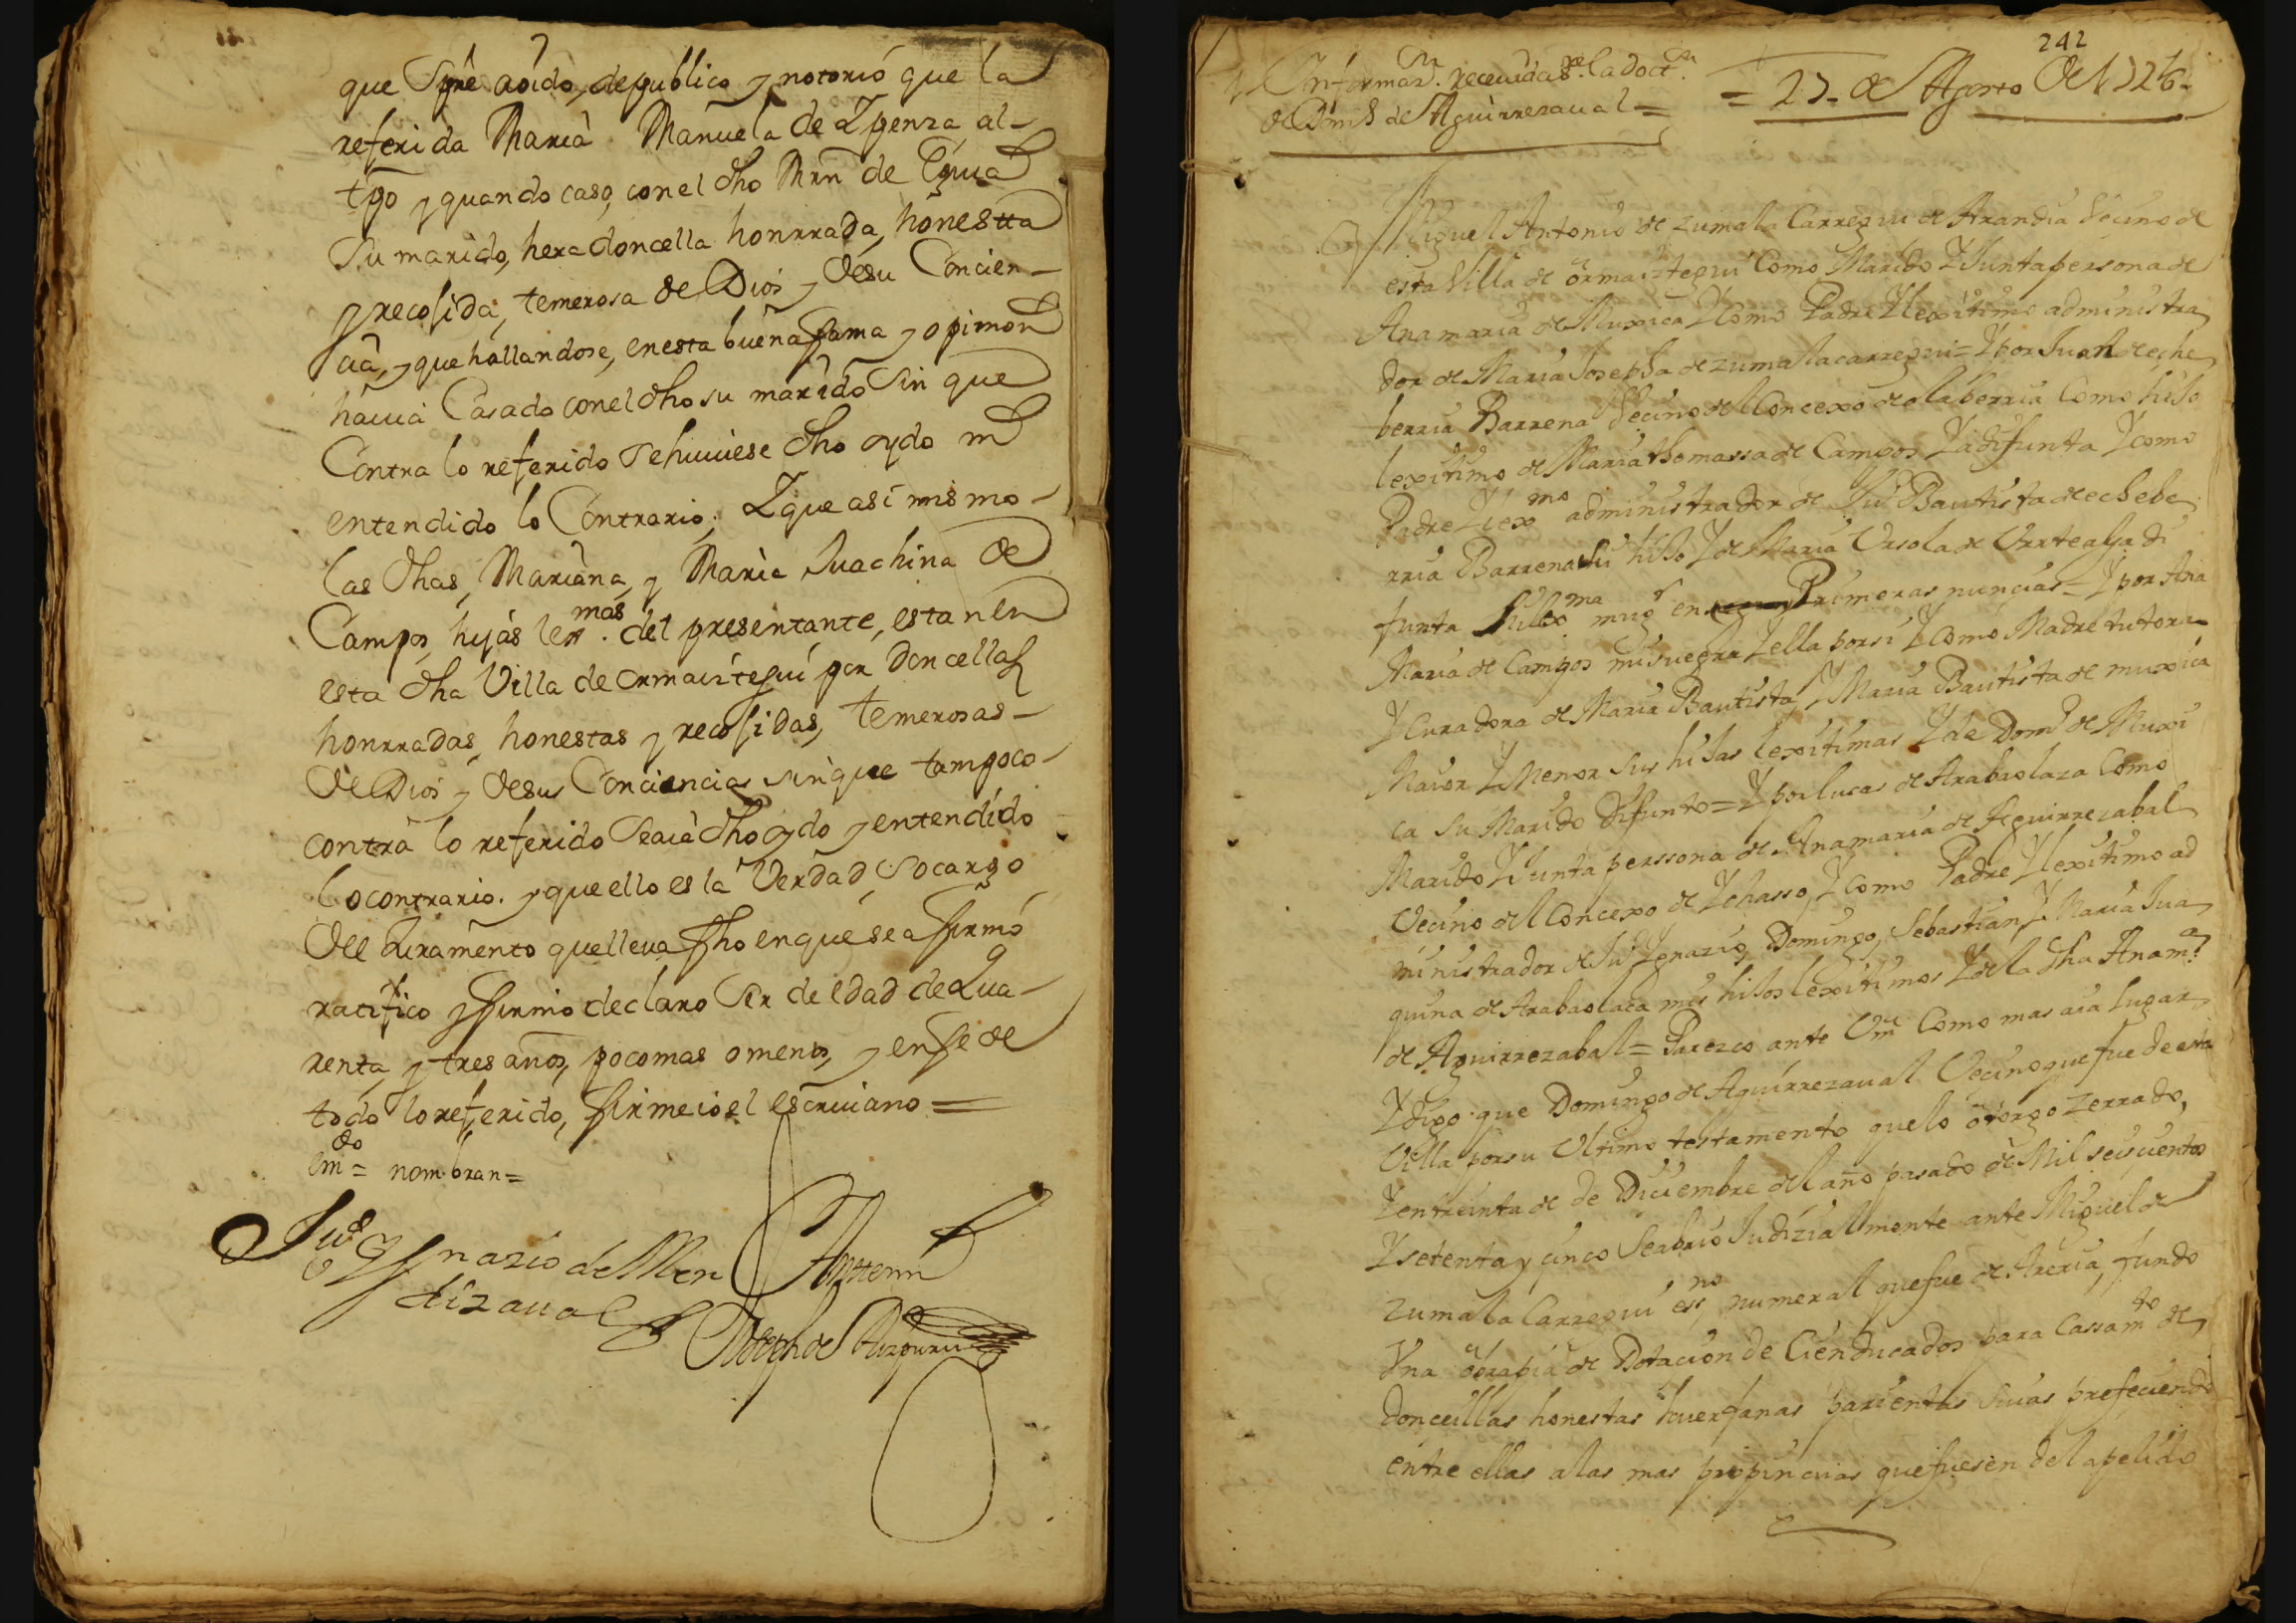 que Spre aoido, de publico y notorio que la
referida Maria Manuela de Ypenza al-
tpo y quando caso, con el dho Mrn de
Su marido, hera doncella honrrada, honestta
y recojida, temerosa de Dios y de su Concien-
cia, y que hallandose, en esta buena fama y opinion
hauia Casado con el dho su marido Sin que
Contra lo referido Se huuiese dho oydo ni
entendido lo Contrario; Y que asi mismo-
las dhas, Mariana, y Maria Juachina de
Campos, hijas lexmas. del presentante, estan en
esta dha Villa de ormaiztegui por Doncellas
honrradas, honestas y recojidas, temerosas-
de Dios y de sus Conciencias sin que tampoco-
contra lo referido Seaia dho oydo y entendido
lo contrario. y que ello es la Verdad Socargo
del Juramento que lleua fho en que se afirmó
ratifico y firmo declaro Ser de edad de Qua-
renta y tres años, poco mas o menos, y en fe de
todo lo referido, firme io el escriuano =
Emdo = nombran =
Jun Ygnazio de Men Antemi
dizaual
Joseph de Aizpuru
242
Informazn. receuidas pe. la doctcn.
de Domo de Aguirrezaual =
= 27- de Agosto de 1726-
Miguel Antonio de zumala Carregui de Arandia Vecino de
esta Villa de ormaiztegui Como Marido Y Junta persona de
Anamaria de Muxica Y Como Padre Y lexitimo administra
dor de Maria Josepha de zumalacarregui = Y por Juan de eche
berria Barrena Vecino del Concexo de olaberria Como hijo
lexitimo de Maria thomassa de Campos Ya difunta Y como
Padre Y lexmo administrador de Jun Bautista de echebe
rria Barrena Su hijo Y de Maria Vrsola de Vrtealja di
funta Su lexma mugr en Primeras nuncias = Y por Ana
Maria de Campos mi suegra Y ella por si Y Como Madre tutora
Y Curadora de Maria Bautista, Y Maria Bautista de muxica
Maior Y Menor sus hijas lexitimas Y de Domo de Muxi
ca su Marido difunto = Y por lucas de Arabaolaza Como
Marido Y Junta perssona de Anamaria de Aguirrezabal
Vecino del Concexo de Ychasso, Y como Padre Y lexitimo ad
ministrador de Jun Ygnazio, Domingo, Sebastian, Y Maria Jua
quina de Arabaolaça mis hijos lexitimos Y de la dha Anama
de Aguirrezabal = Parezco ante Vm Como mas aia lugar
Y digo que Domingo de Aguirrezaual Vecino que fue de esta
Villa por su Vltimo testamento que lo otorgo zerrado,
Y en treinta de de Diciembre del año pasado de Mil seiscientos
Y setenta y cinco Se abrio Judizialmente ante Miguel de
zumala Carregui essno numeral que fue de Areria, fundo
Vna obra pia de Dotacion de Cien ducados para Cassamto de
doncellas honestas huerfanas parientas suias prefeciendo
entre ellas a las mas propincuas que fuesen del apelido